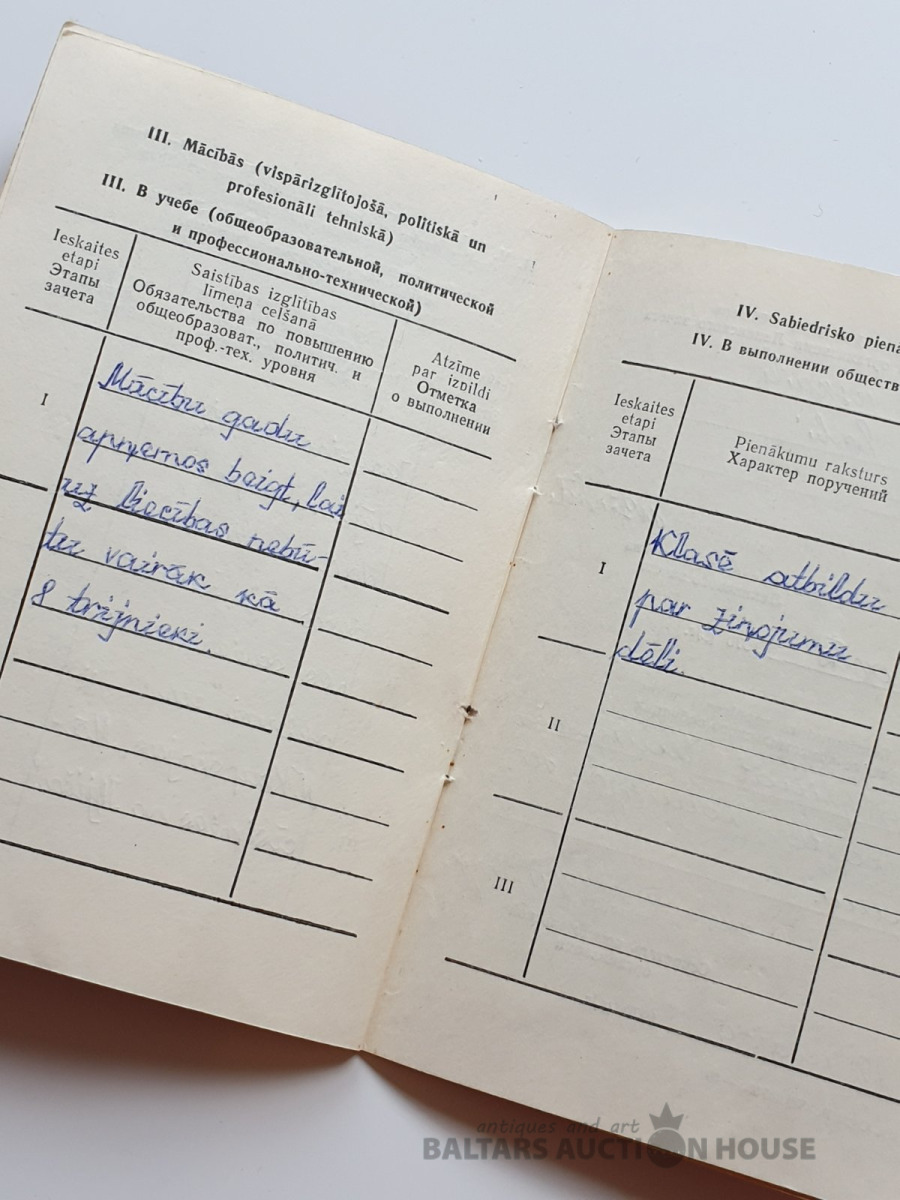 III. Mācībās (vispārizglītojošā, politiskā un
profesionāli tehniskā)
III. В учебе (общеобразовательной, политической
и профессионально-технической)
Ieskaites
etapi
Этапы
зачета
Saistības izglītības
līmeņa celšanā
Обязательства по повышению
общеобразоват., политич. и
проф.-тех. уровня
Atzīme
par izpildi
Отметка
о выполнении
I
Mācību gadu
apņemos beigt, lai
uz liecības nebū-
tu vairāk kā
8 trijnieki.
IV. Sabiedrisko piena
IV. В выполнении обществ
Ieskaites
etapi
Этапы
зачета
Pienākumu raksturs
Характер поручений
I
Klasē atbildu
par ziņojumu
dēli.
II
III
antiques and art
BALTARS AUCTION HOUSE